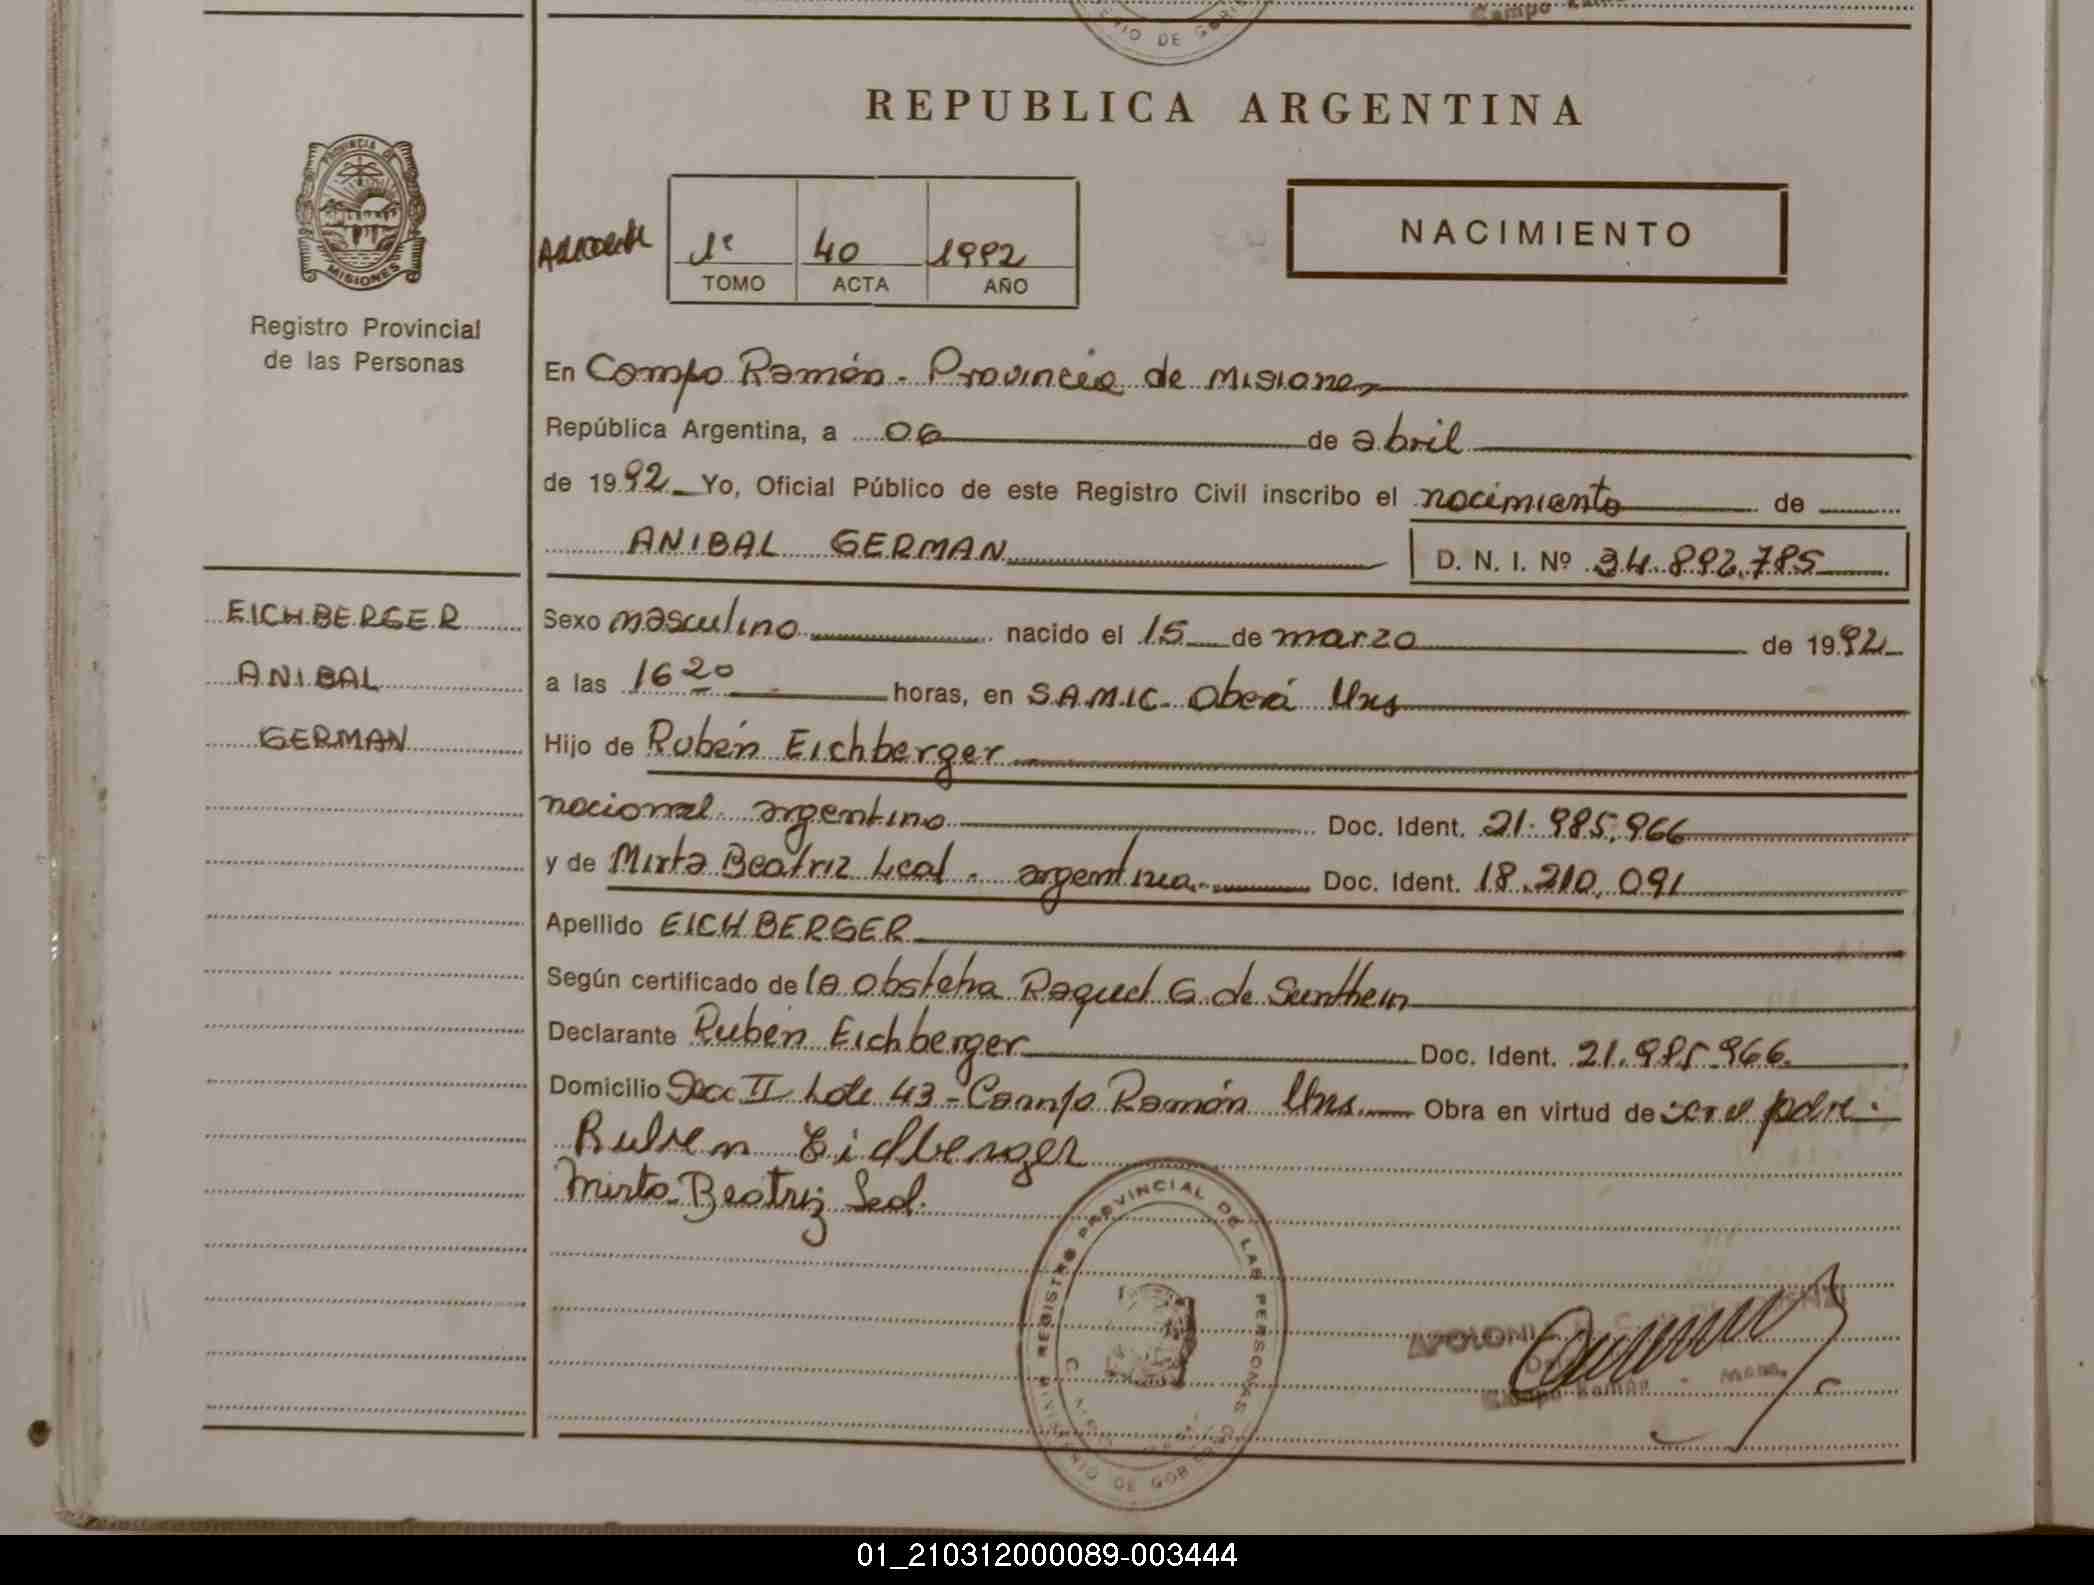 Campo Ramó
RIO DE GOBIE
REPUBLICA ARGENTINA
PROVINCIA DE
MISIONES
Registro Provincial
de las Personas
1º 40 1992
TOMO ACTA AÑO
NACIMIENTO
En Campo Ramón - Provincia de Misiones
República Argentina, a 06 de abril
de 1992 Yo, Oficial Público de este Registro Civil inscribo el nacimiento de
ANIBAL GERMAN D. N. I. Nº 34.892.785
EICHBERGER
ANIBAL
GERMAN
Sexo masculino nacido el 15 de marzo de 1992
a las 16 20 horas, en S.A.M.I.C. Oberá Mns
Hijo de Rubén Eichberger
nacional argentino Doc. Ident. 21.985.966
y de Mirta Beatriz Leal - argentina Doc. Ident. 18.210.091
Apellido EICHBERGER
Según certificado de la obstetra Raquel G. de
Declarante Rubén Eichberger Doc. Ident. 21.985.966
Domicilio Secc II Lote 43 - Campo Ramón Mns Obra en virtud de ser el padre.
Ruben Eichberger
Mirta Beatriz Leal
REGISTRO PROVINCIAL DE LAS PERSONAS
MINISTERIO DE GOBIERNO
APOLONI
Campo Ramón - Mnes.
01_210312000089-003444